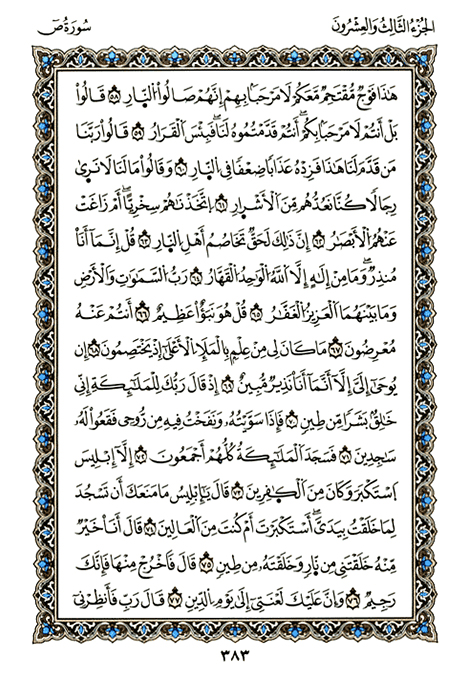 الجُزْءُ الثَّالِثُ وَالْعِشْرُونَ
سُورَةُ صٓ
هَٰذَا فَوْجٌ مُّقْتَحِمٌ مَّعَكُمْ لَا مَرْحَبًا بِهِمْ إِنَّهُمْ صَالُوا۟ ٱلنَّارِ ٥٨ قَالُوا۟
بَلْ أَنتُمْ لَا مَرْحَبًا بِكُمْ أَنتُمْ قَدَّمْتُمُوهُ لَنَا فَبِئْسَ ٱلْقَرَارُ ٥٩ قَالُوا۟ رَبَّنَا
مَن قَدَّمَ لَنَا هَٰذَا فَزِدْهُ عَذَابًا ضِعْفًا فِى ٱلنَّارِ ٦٠ وَقَالُوا۟ مَا لَنَا لَا نَرَىٰ
رِجَالًا كُنَّا نَعُدُّهُم مِّنَ ٱلْأَشْرَارِ ٦١ أَتَّخَذْنَٰهُمْ سِخْرِيًّا أَمْ زَاغَتْ
عَنْهُمُ ٱلْأَبْصَٰرُ ٦٢ إِنَّ ذَٰلِكَ لَحَقٌّ تَخَاصُمُ أَهْلِ ٱلنَّارِ ٦٣ قُلْ إِنَّمَآ أَنَا۠
مُنذِرٌ وَمَا مِنْ إِلَٰهٍ إِلَّا ٱللَّهُ ٱلْوَٰحِدُ ٱلْقَهَّارُ ٦٤ رَبُّ ٱلسَّمَٰوَٰتِ وَٱلْأَرْضِ
وَمَا بَيْنَهُمَا ٱلْعَزِيزُ ٱلْغَفَّٰرُ ٦٥ قُلْ هُوَ نَبَؤٌا۟ عَظِيمٌ ٦٦ أَنتُمْ عَنْهُ
مُعْرِضُونَ ٦٧ مَا كَانَ لِىَ مِنْ عِلْمٍ بِٱلْمَلَإِ ٱلْأَعْلَىٰٓ إِذْ يَخْتَصِمُونَ ٦٨ إِن
يُوحَىٰٓ إِلَىَّ إِلَّآ أَنَّمَآ أَنَا۠ نَذِيرٌ مُّبِينٌ ٦٩ إِذْ قَالَ رَبُّكَ لِلْمَلَٰٓئِكَةِ إِنِّى
خَٰلِقٌۢ بَشَرًا مِّن طِينٍ ٧٠ فَإِذَا سَوَّيْتُهُۥ وَنَفَخْتُ فِيهِ مِن رُّوحِى فَقَعُوا۟ لَهُۥ
سَٰجِدِينَ ٧١ فَسَجَدَ ٱلْمَلَٰٓئِكَةُ كُلُّهُمْ أَجْمَعُونَ ٧٢ إِلَّآ إِبْلِيسَ
ٱسْتَكْبَرَ وَكَانَ مِنَ ٱلْكَٰفِرِينَ ٧٣ قَالَ يَٰٓإِبْلِيسُ مَا مَنَعَكَ أَن تَسْجُدَ
لِمَا خَلَقْتُ بِيَدَىَّ أَسْتَكْبَرْتَ أَمْ كُنتَ مِنَ ٱلْعَالِينَ ٧٤ قَالَ أَنَا۠ خَيْرٌ
مِّنْهُ خَلَقْتَنِى مِن نَّارٍ وَخَلَقْتَهُۥ مِن طِينٍ ٧٥ قَالَ فَٱخْرُجْ مِنْهَا فَإِنَّكَ
رَجِيمٌ ٧٦ وَإِنَّ عَلَيْكَ لَعْنَتِىٓ إِلَىٰ يَوْمِ ٱلدِّينِ ٧٧ قَالَ رَبِّ فَأَنظِرْنِىٓ
٣٨٣